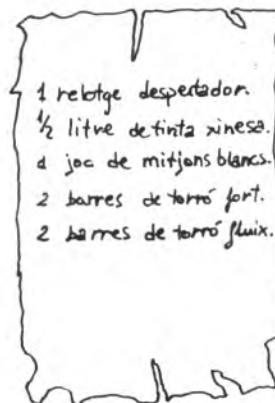 1 rellotge despertador.
1/2 litre de tinta xinesa.
1 joc de mitjons blancs.
2 barres de torró fort.
2 barres de torró fluix.